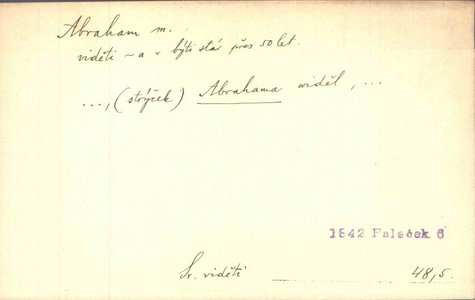 Abraham m.
viděti ~a = býti stár přes 50 let.
..., (strýček) Abrahama widěl, ...
1842 Faleček 6
Sr. viděti 48,5.